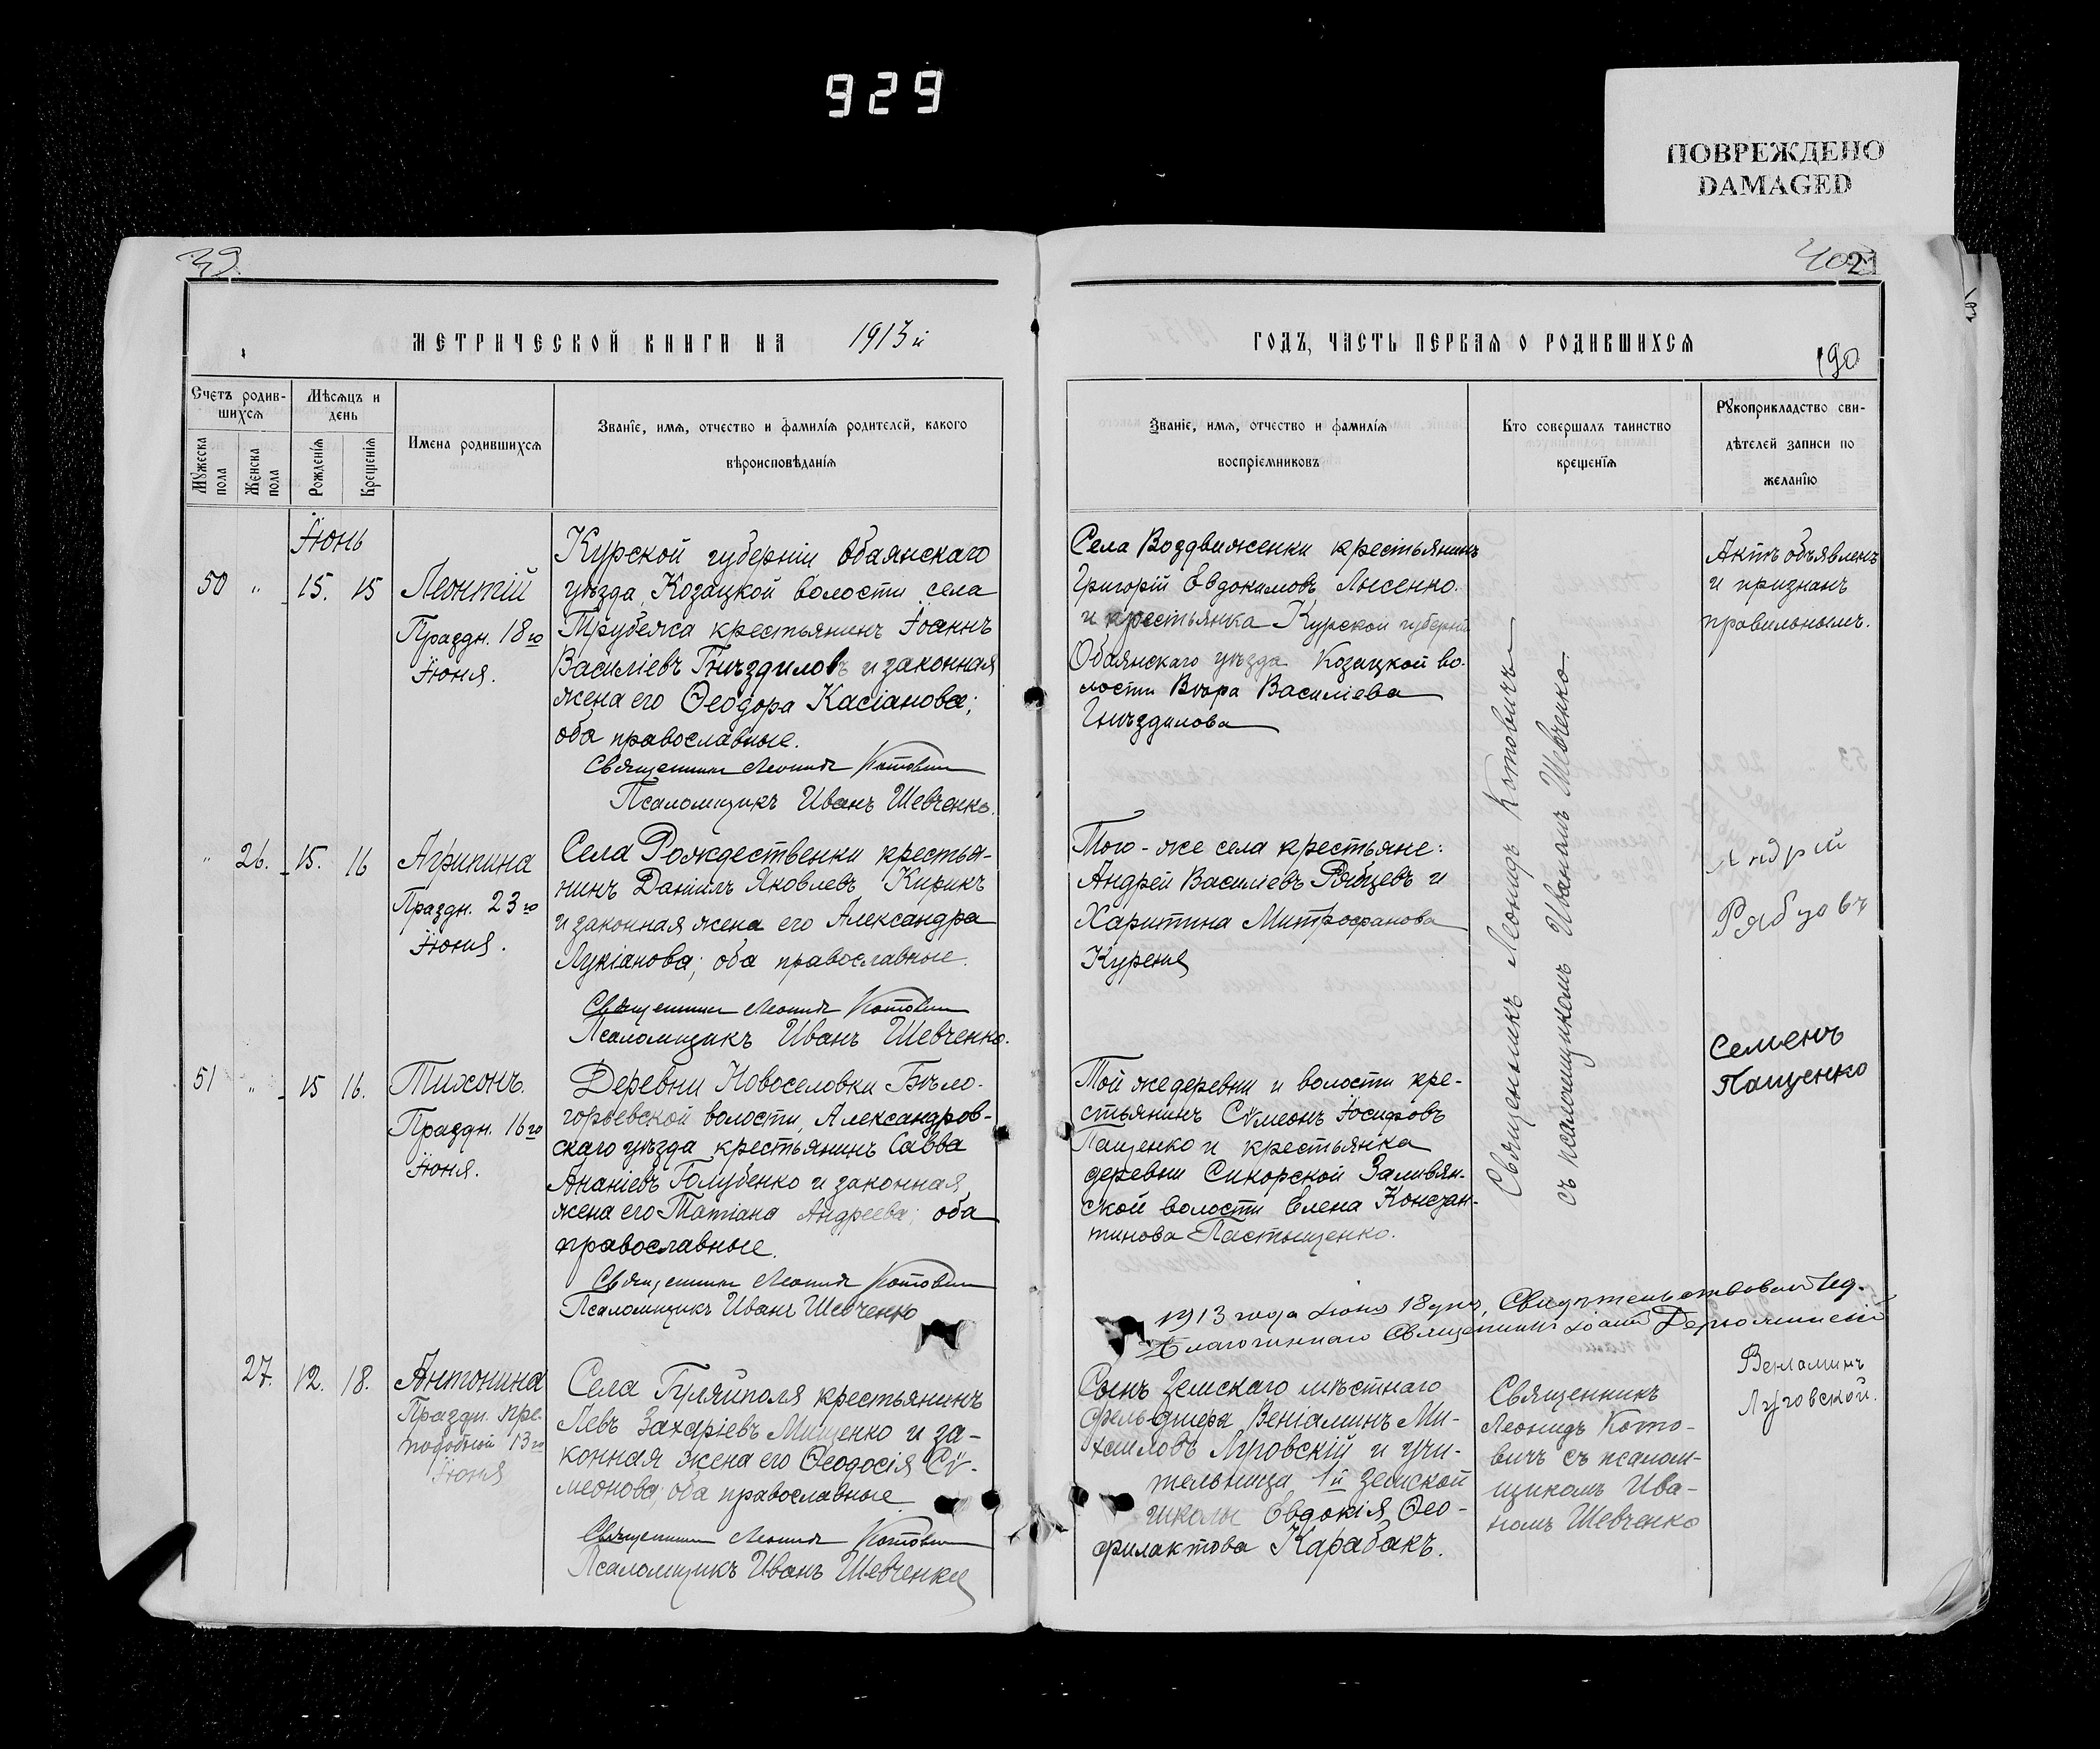 929
ПОВРЕЖДЕНО
DAMAGED
39.
40
21
МЕТРИЧЕСКОЙ КНИГИ НА 1913й
ГОДЪ, ЧАСТЬ ПЕРВАЯ О РОДИВШИХСЯ
190
Счетъ родив-
шихся
Мужеска пола
Женска пола
Мѣсяцъ и
день
Рожденія
Крещенія
Имена родившихся
Званіе, имя, отчество и фамилія родителей, какого
вѣроисповѣданія
Званіе, имя, отчество и фамилія
воспріемниковъ
Кто совершалъ таинство
крещенія
Рукоприкладство сви-
дѣтелей записи по
желанію
Іюнь
50 " 15. 15
Леонтій
Праздн. 18го
Іюня.
Курской губерніи Обаянскаго
уѣзда, Козацкой волости села
Трубежа крестьянинъ Іоаннъ
Василіевъ Гнѣздиловъ и законная
жена его Ѳеодора Касіанова;
оба православные.
Священникъ Леонидъ Котовичъ
Псаломщикъ Иванъ Шевченко.
Села Воздвиженки крестьянинъ
Григорій Евдокимовъ Лысенко.
и крестьянка Курской губерніи
Обаянскаго уѣзда Козацкой во-
лости Вѣра Василіева
Гнѣздилова
Актъ объявленъ
и признанъ
правильнымъ.
" 26. 15. 16
Агрипина
Праздн. 23го
Іюня.
Села Рождественки крестья-
нинъ Даніилъ Яковлевъ Кирикъ
и законная жена его Александра
Лукіанова; оба православные.
Священникъ Леонидъ Котовичъ
Псаломщикъ Иванъ Шевченко.
Того-же села крестьяне:
Андрей Василіевъ Рябцевъ и
Харитина Митрофанова
Курения
Андрій
Рябцовъ
51 " 15 16.
Тихонъ.
Праздн. 16го
Іюня.
Деревни Новоселовки Бѣло-
горьевской волости, Александров-
скаго уѣзда крестьянинъ Савва
Ананіевъ Голубенко и законная
жена его Татіана Андреева; оба
православные.
Священникъ Леонидъ Котовичъ
Псаломщикъ Иванъ Шевченко
Той же деревни и волости кре-
стьянинъ Сѵмеонъ Іосифовъ
Пащенко и крестьянка
деревни Сикорской Заливян-
ской волости Елена Констан-
тинова Пастощенко.
Семенъ
Пащенко
Священникъ Леонидъ Котовичъ
съ псаломщикомъ Иваномъ Шевченко.
1913 года Іюня 18 дня, Свидѣтельствовалъ
Благочиннаго Священникъ Іоаннъ
27. 12. 18.
Антонина
Праздн. пре-
подобной 13го
Іюня
Села Гуляйполя крестьянинъ
Левъ Захаріевъ Мищенко и за-
конная жена его Ѳеодосія Сѵ-
меонова; оба православные
Священникъ Леонидъ Котовичъ
Псаломщикъ Иванъ Шевченко
Сынъ земскаго мѣстнаго
фельдшера Веніаминъ Ми-
хаиловъ Луговскій и учи-
тельница 1й земской
школы Евдокія Ѳео-
филактова Карабакъ.
Священникъ
Леонидъ Кото-
вичъ съ псалом-
щикомъ Ива-
номъ Шевченко
Веніаминъ
Луговской.